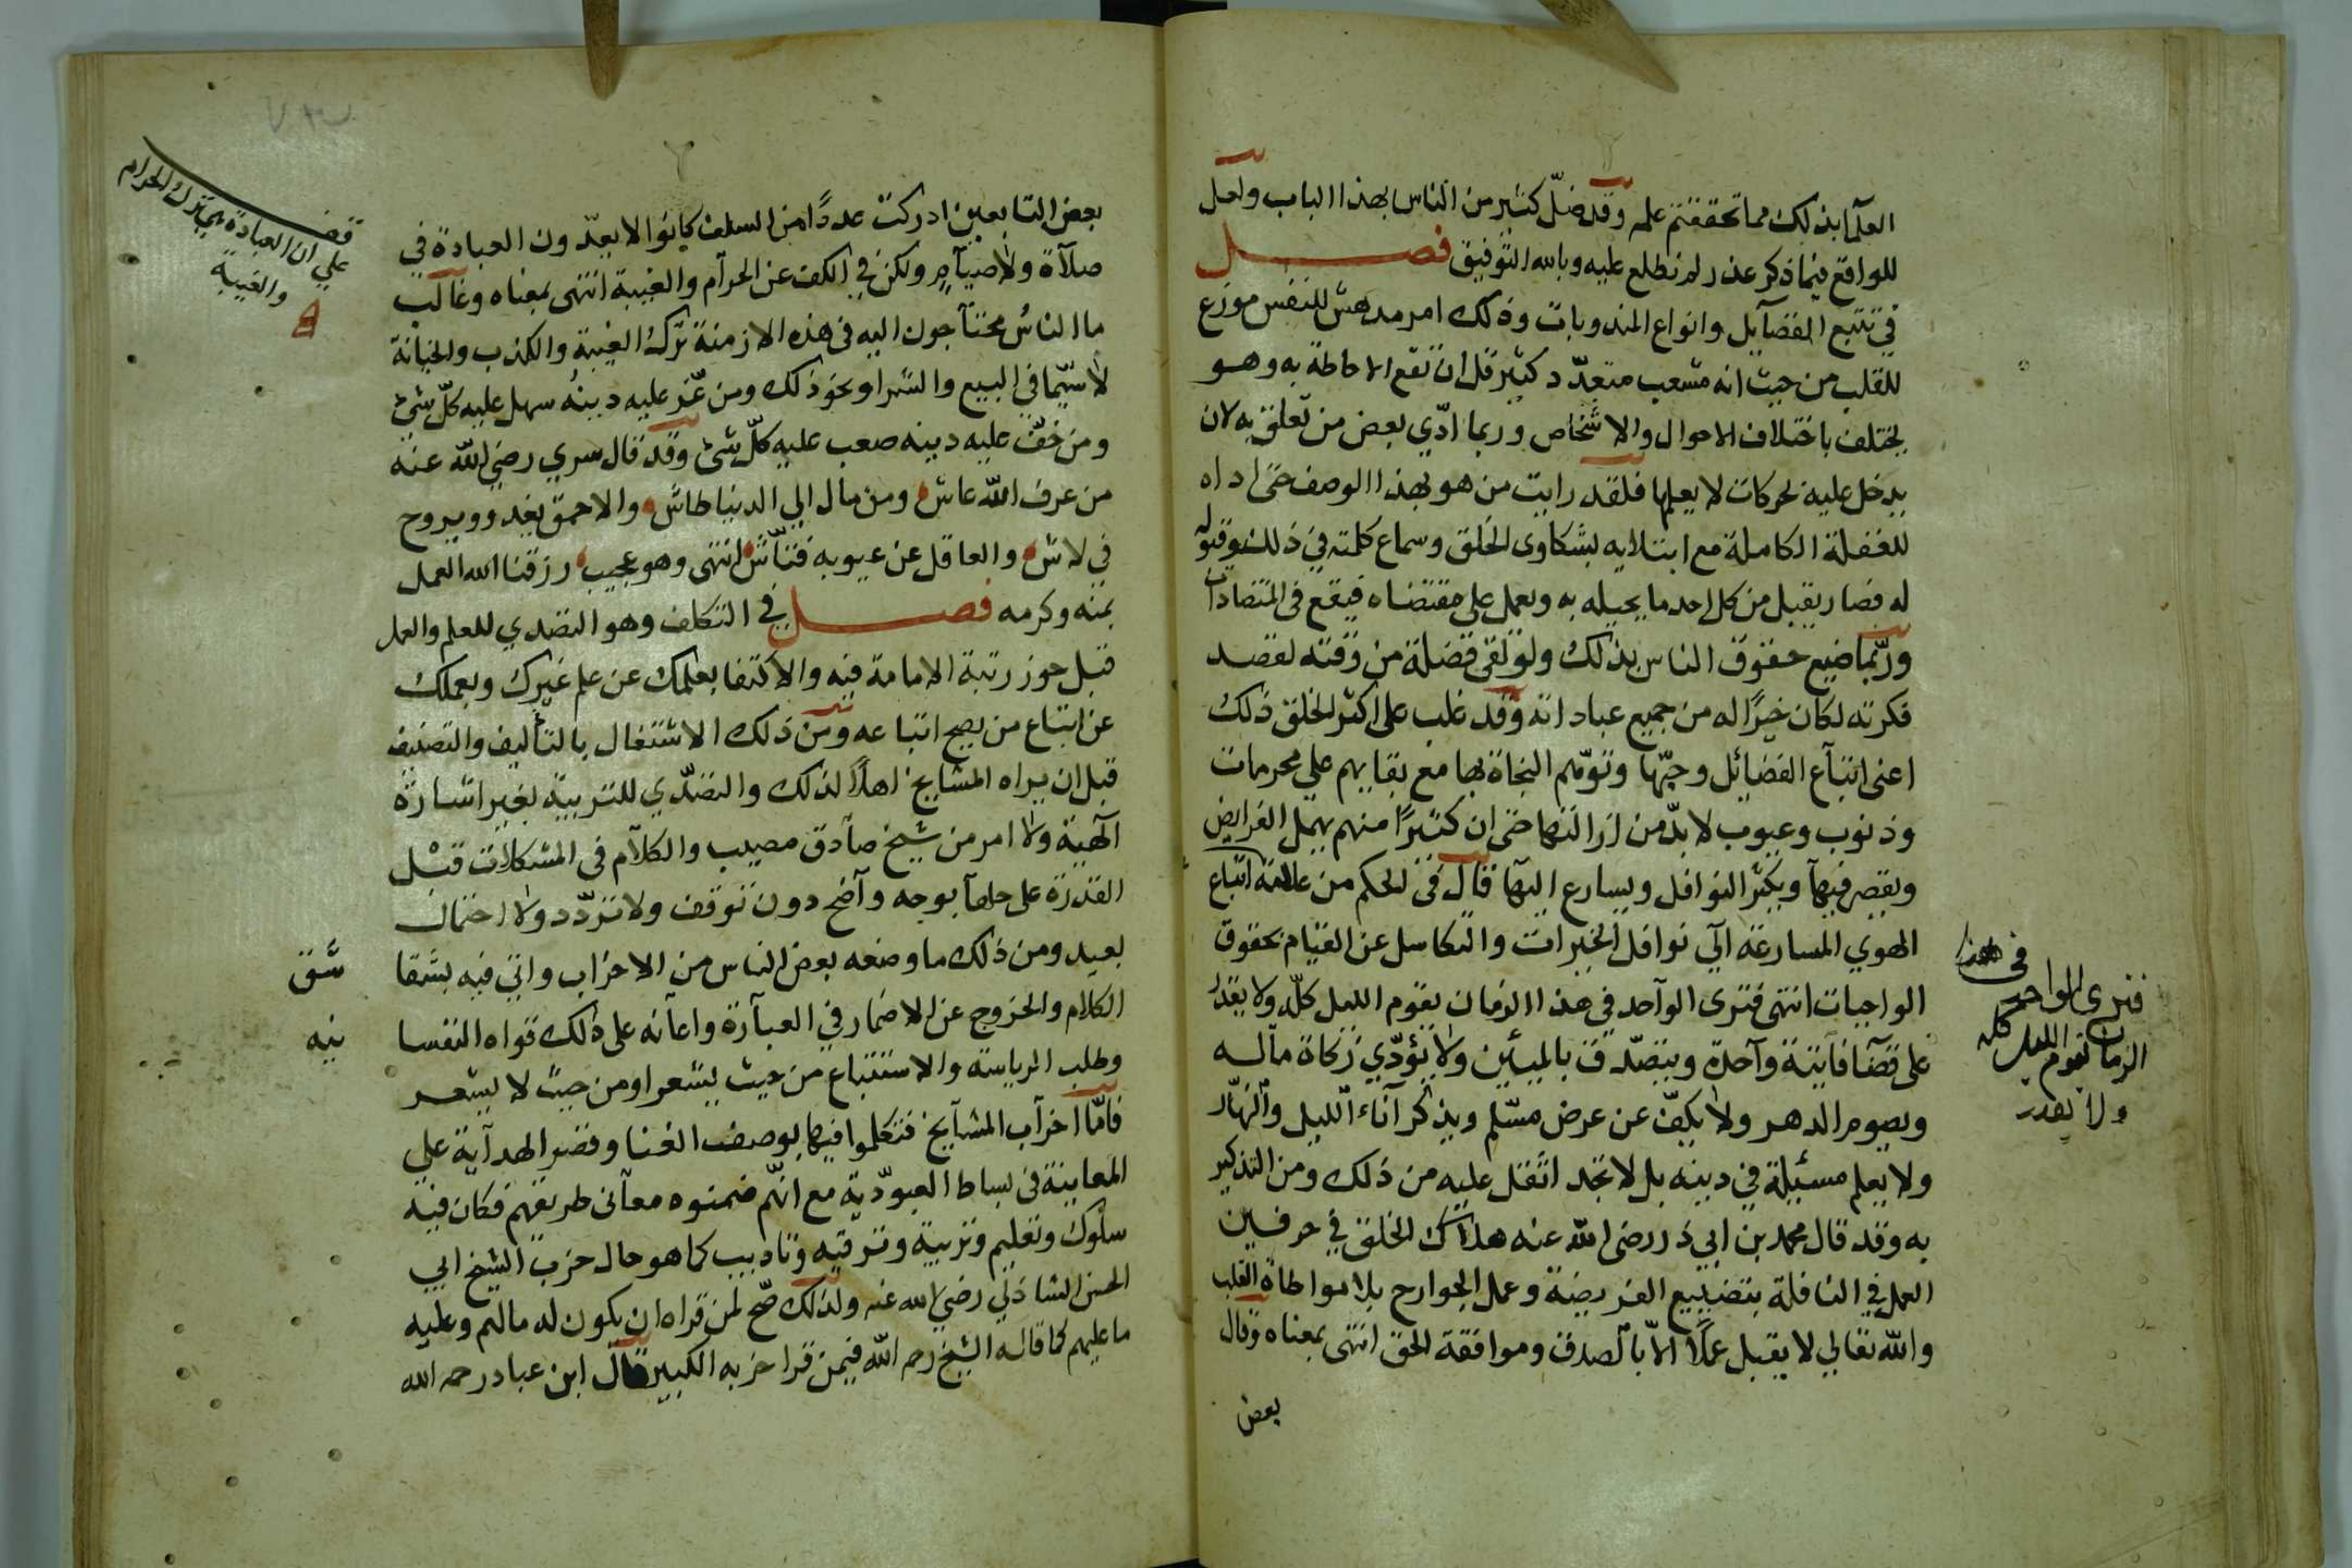 العلمآ بذلك مما تحققتم علمه وقد ضلّ كثير من الناس بهذا الباب ولعل
للواقع فيما ذكر عذر لم نطلع عليه وبالله التوفيق فصل
في تتبع الفضآيل وانواع المندوبات وذلك امر مدهش للنفس موزع
للقلب من حيث انه متشعب متعدّد كثير قل ان تقع الاحاطة به وهو
يختلف باختلاف الاحوال والاشخاص وربما ادّي بعض من تعلق به لان
يدخل عليه بحركات لا يعلمها فلقد رايت من هو بهذا الوصف حتى اداه
للغفلة الكاملة مع ابتلايه بشكاوى الخلق وسماع كلمته في ذلك وقبوله
له فصار يقبل من كل احد ما يحيله به ويعمل على مقتضاه فيقع في المتضادات
وربّما ضيع حقوق الناس بذلك ولو لقى فضلة من وقته لقصد
فكرته لكان خيرًا له من جميع عباداته وقد غلب على اكثر الخلق ذلك
اعنى اتبآع الفضائل وحبّها وتوهّم النجاة بها مع بقايهم علي محرمات
وذنوب وعيوب لا بدّ من ازالتها حتى ان كثيرًا منهم يهمل الفرايض
ويقصر فيهآ ويكثر النوافل ويسارع اليهآ قال في الحكم من علامة اتباع
الهوي المسارعة الي نوافل الخيرات والتكاسل عن القيام بحقوق
الواجبات انتهى فترى الوآحد في هذا الزمان يقوم الليل كلّه ولا يقدر
على قضآ فآيتة وآحدة ويتصدّق بالميئين ولا يؤدّي زكاة مآله
ويصوم الدهر ولا يكفّ عن عرض مسّلم ويذكر آناء الليل والنهار
ولا يعلم مسئيلة في دينه بل لا تجد اثقل عليه من ذلك ومن التذكير
به وقد قال محمد بن ابي ذر رضى الله عنه هلاك الخلق في حرفين
العمل في النافلة بتضييع الفريضة وعمل الجوارح بلا مواطاة القلب
والله تعالي لا يقبل عملًا الّا بالصدق وموافقة الحق انتهى بمعناه وقال
بعض
فترى الواحد في هذا
الزمان يقوم الليل كله
ولا يقدر
بعض التابعين ادركت عددًا من السلف كانوا لا يعدّون العبادة في
صلآة ولا صيآم ولكن في الكف عن الحرآم والغيبة انتهى بمعناه وغالب
ما الناسُ محتآجون اليه في هذه الازمنة تركُ الغيبة والكذب والخيانة
لا سيّما في البيع والشرا ونحو ذلك ومن عّز عليه دينُه سهل عليه كلّ شئ
ومن خفّ عليه دينه صعب عليه كلّ شئ وقد قال سري رضي الله عنه
من عرف الله عاش ومن مال الي الدنيا طاش والاحمق يغدو ويروح
في لاش والعاقل عن عيوبه فتّاش انتهى وهو عجيب رزقنا الله العمل
بمنه وكرمه فصل في التكلف وهو التصدي للعلم والعمل
قبل حوز رتبة الامامة فيه والاكتفا بعلمك عن علم غيرك وبعملك
عن اتباع من يصح اتباعه ومن ذلك الاشتغال بالتأليف والتصنيف
قبل ان يراه المشايخ اهلًا لذلك والتصدّي للتربية بغير اشارة
آلهية ولا امر من شيخ صآدق مصيب والكلآم في المشكلات قبْل
القدرة على حلهآ بوجه وآضح دون توقف ولا تردّد ولا احتمال
بعيد ومن ذلك ما وضعه بعض الناس من الاحزاب واتى فيه بشقا
شق
الكلام والخروج عن الاضمار في العبآرة واعآنه على ذلك قواه النفسا
نيه
وطلب الرياسة والاستتباع من حيث يشعر او من حيث لا يشعر
فامّا احزآب المشآيخ فتكلموا فيها بوصف الغنا وقصر الهدآية علي
المعاينة في بساط العبودّية مع انّهم ضمنوه معآنى طريقهم فكان فيه
سلوك وتعليم وتربية وترقيه وتاديب كما هو حال حزب الشيخ ابي
الحسن الشاذلي رضي الله عنه ولذلك صّح لمن قراه ان يكون له مالهم وعليه
ما عليهم كما قاله الشيخ رحمه الله فيمن قرا حزبه الكبير قال ابن عباد رحمه الله
قف
علي ان العبادة هي ترك الحرام
والغيبة